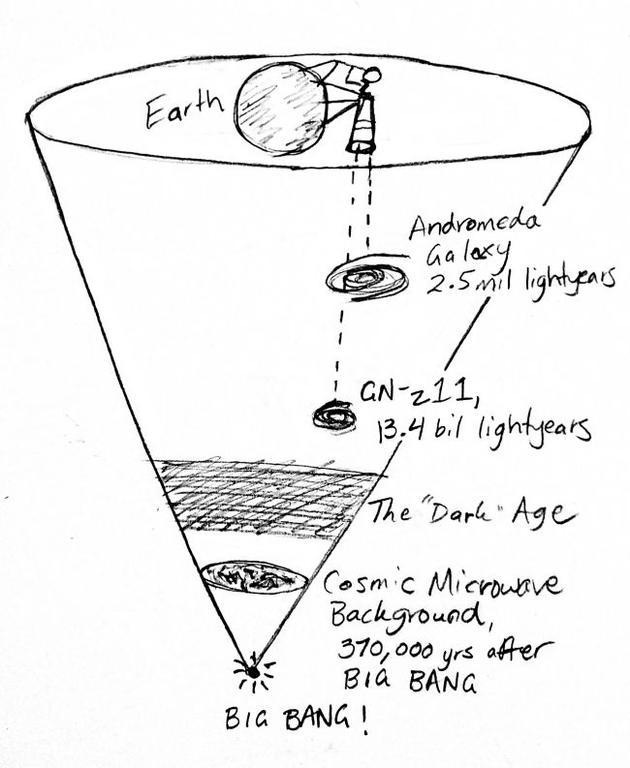 Earth
Andromeda
Galaxy
2.5 mil lightyears
GN-z11,
13.4 bil lightyears
The "Dark" Age
Cosmic Microwave
Background,
370,000 yrs after
BIG BANG
BIG BANG!